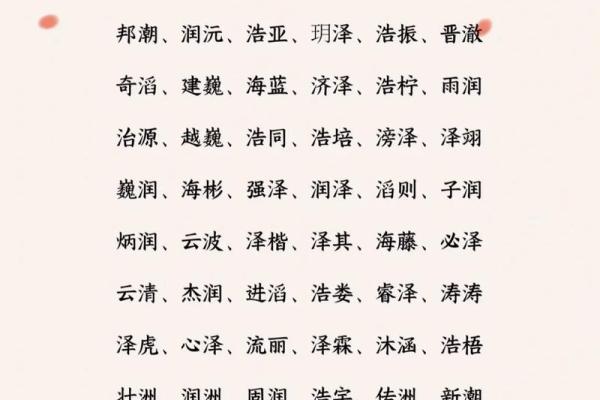 邦潮、润沅、浩亚、玥泽、浩振、晋澈
奇滔、建巍、海蓝、济泽、浩柠、雨润
治源、越巍、浩同、浩培、滂泽、泽翊
巍润、海彬、强泽、润泽、滔则、子润
炳润、云波、泽楷、泽其、海藤、必泽
云清、杰润、进滔、浩娄、睿泽、涛涛
泽虎、心泽、流丽、泽霖、沐涵、浩梧
壮洲、润洲、固润、浩宇、传洲、新潮